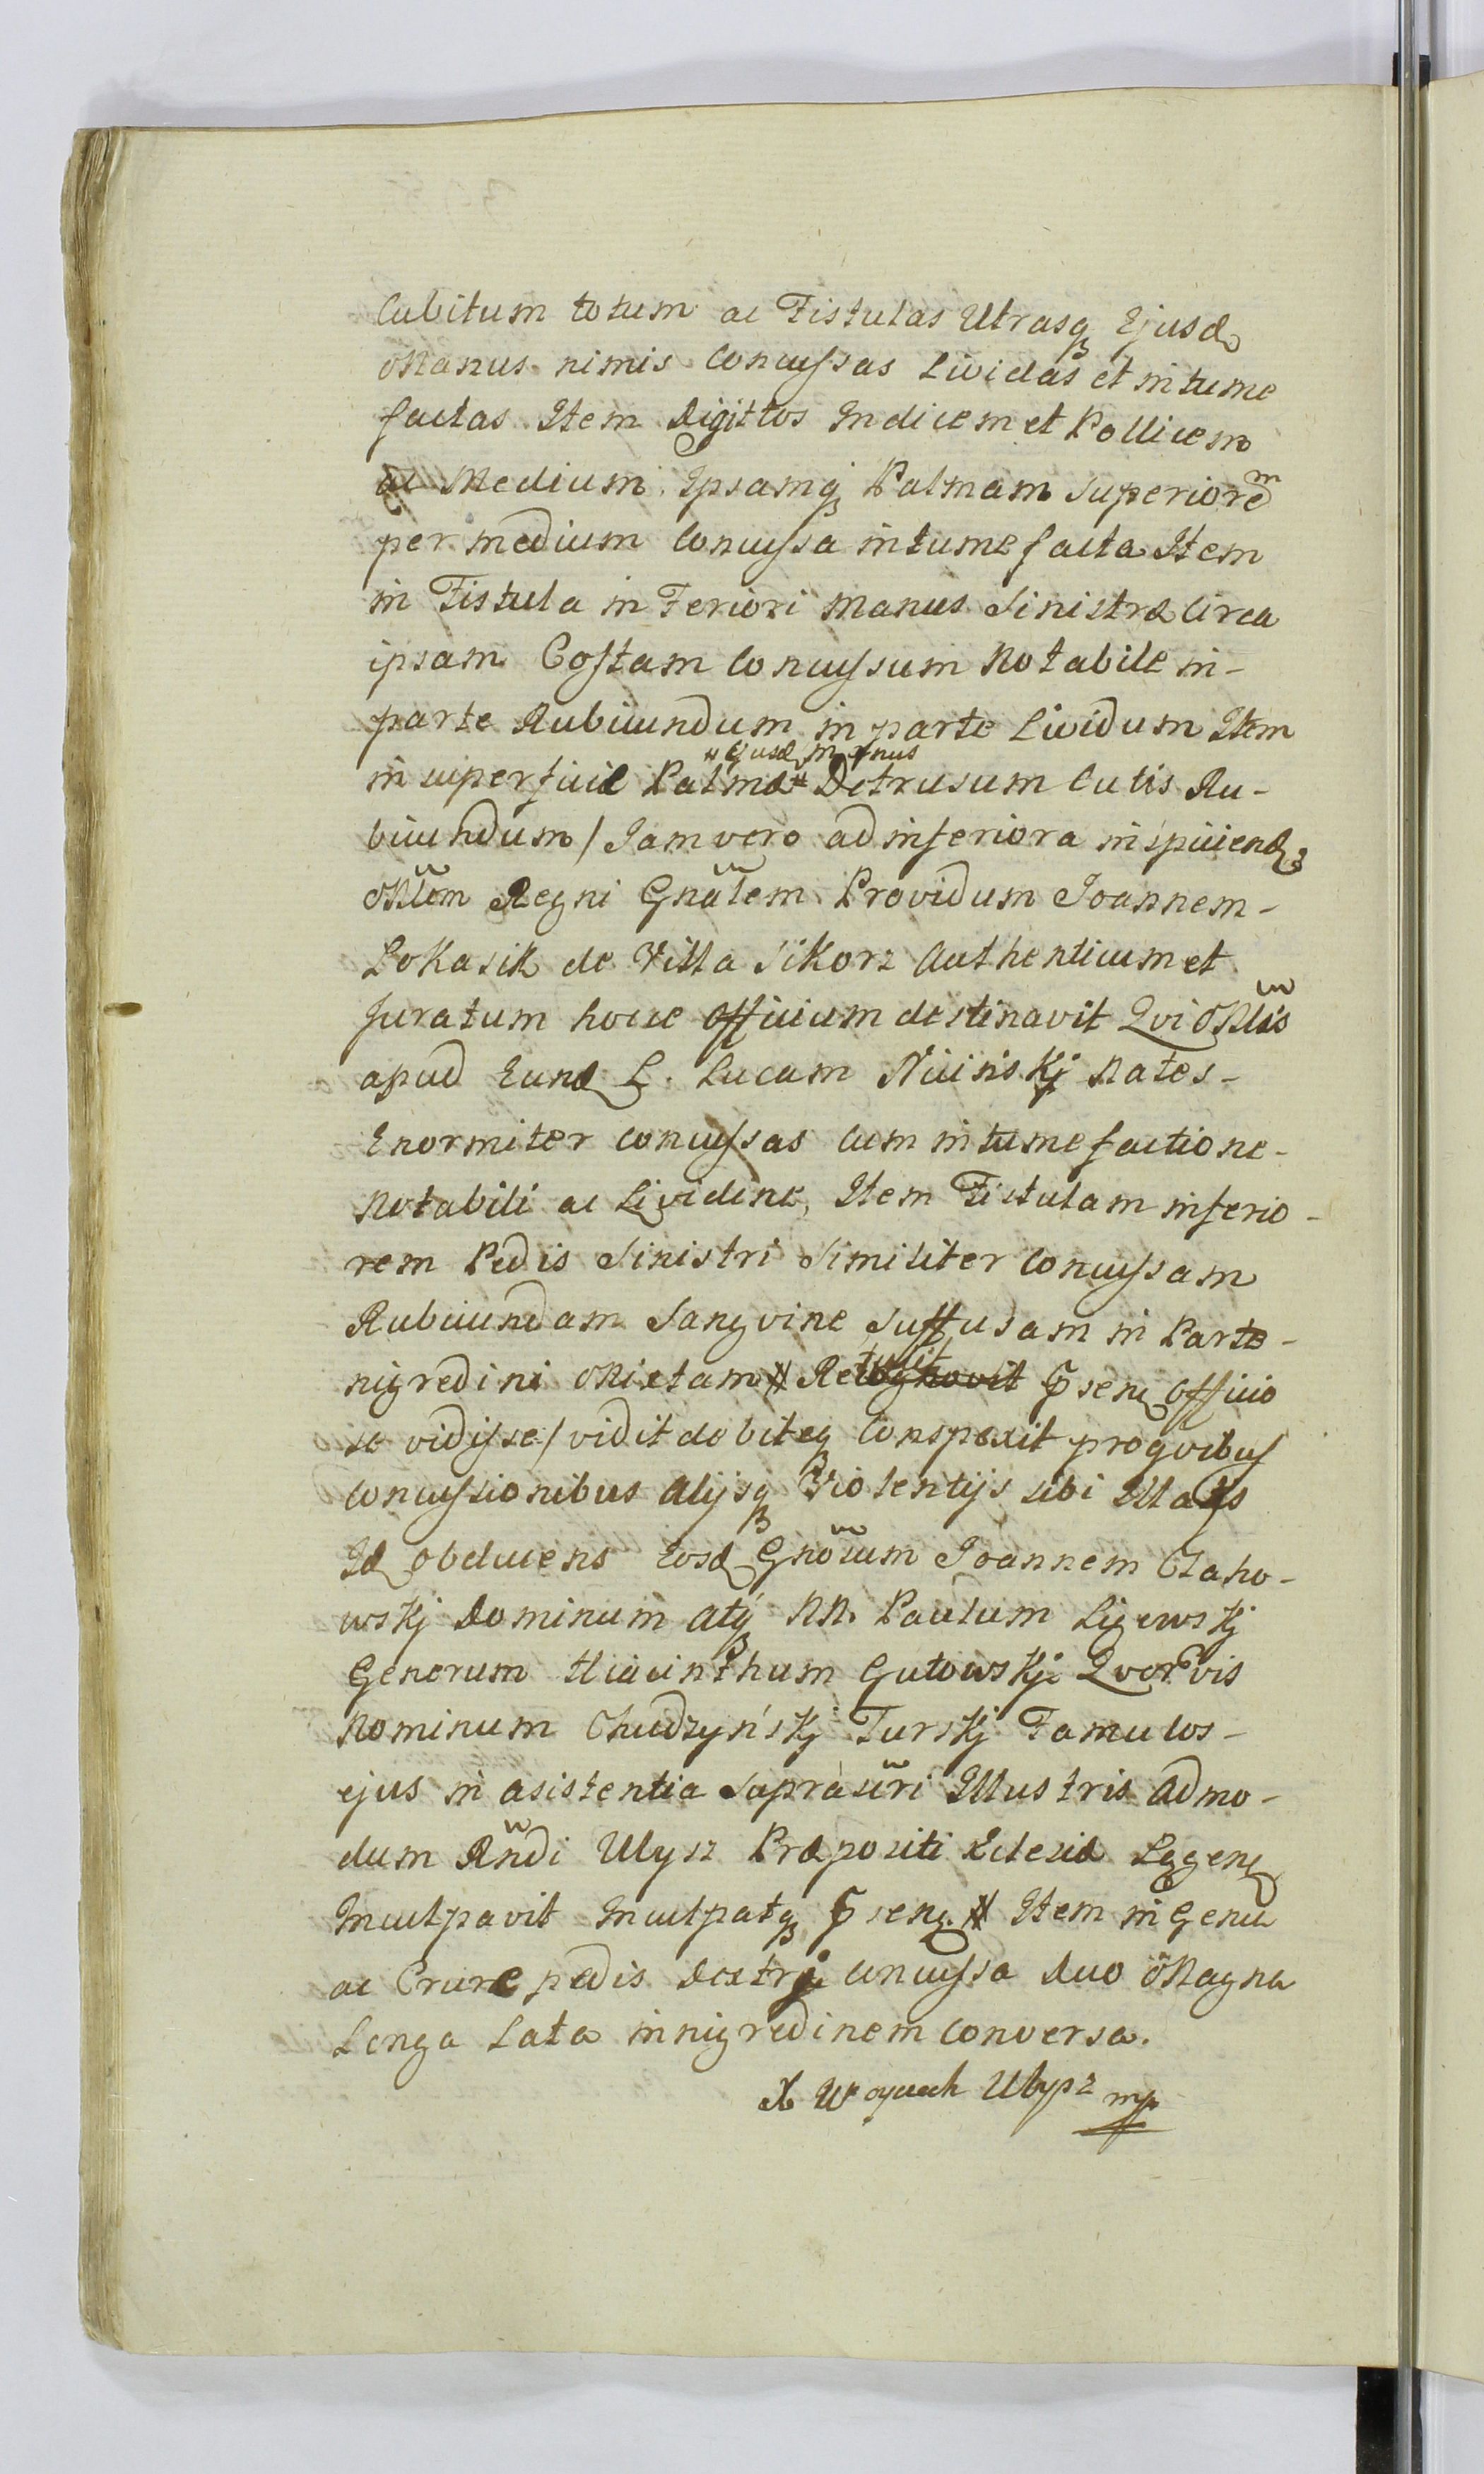 Cubitum totum ac Fistulas Utrasq Ejusd
Manus nimis Concussas Lividas et intume
factas Item Digittos Indicem et Pollicem
ac Medium Ipsamq Palmam Superiorem
per medium Concussa intumefacta Item
in Fistula inFeriori Manus Sinistræ Circa
ipsam Costam Concussum Notabile in-
parte Rubicundum in parte Lividum Item
# Ejusd Manus
in superficie Palmæ # Detrusum Cutis Ru-
bicundum / Jam vero ad inferiora inspiciend
Mlem Regni Gnalem Providum Joannem-
Lokasik de Villa Sikorz Authenticum et
Juratum hocce Officium destinavit Qvi Mlis
apud Eund L. Lucam Niciński Nates-
Enormiter Concussas Cum intumefactione-
Notabili ac Lividine, Item Fistulam inferio-
rem Pedis Sinistri Similiter Concussam
Rubicundam Sangvine Suffusam in Parte-
tulit
nigredini Mixtam # Recognovit psenq Officio
se vidisse / vidit debiteq Conspexit pro qvibus
Concussionibus Alijsq Violentijs sibi Illatis
Id obducens Eosd Gnosum Joannem Czaho-
wskj Dominum atq NN. Paulum Ligewskj
Generum Hiacinthum Gutowskj Qvorvis
Nominum Chudzyńskj Turskj Famulos-
ejus in asistentia Suprascri Illustris Admo-
dum Rndi Ulysz Præpositi Eclesiæ Lggenq
Inculpavit Inculpatq psenq # Item in Genu
ac Crure pedis Dextri Concussa Duo Magna
Longa Lata in nigredinem Conversa.
X Woyciech Ulysz mp